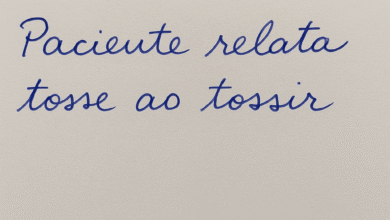 Paciente relata
tosse ao tossir